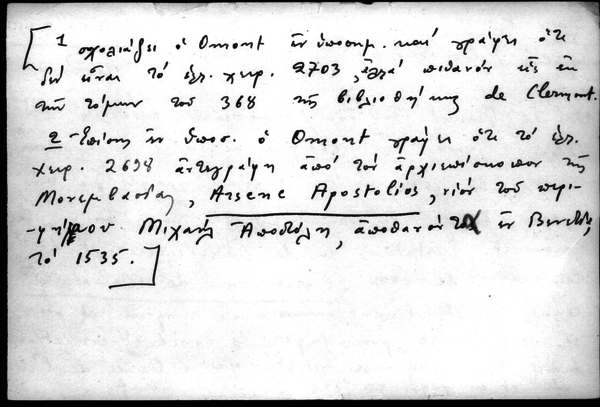 [1 σχολιάζει ὁ Omont ἐν ὑποσημ. καί γράφει ὅτι
δέν εἶναι τό ἑλ. χειρ. 2703, ἀλλά πιθανόν εἷς ἐκ
τῶν τόμων τοῦ 368 τῆς βιβλιοθήκης de Clermont.
2 Ἐπίσης ἐν ὑποσ. ὁ Omont γράφει ὅτι τό ἑλ.
χειρ. 2698 ἀντεγράφη ἀπό τόν ἀρχιεπίσκοπον τῆς
Μονεμβασίας, Arsene Apostolios, υἱόν τοῦ περι-
-φήμου Μιχαήλ Ἀποστόλη, ἀποθανόντα ἐν Βενετίᾳ,
τό 1535.]